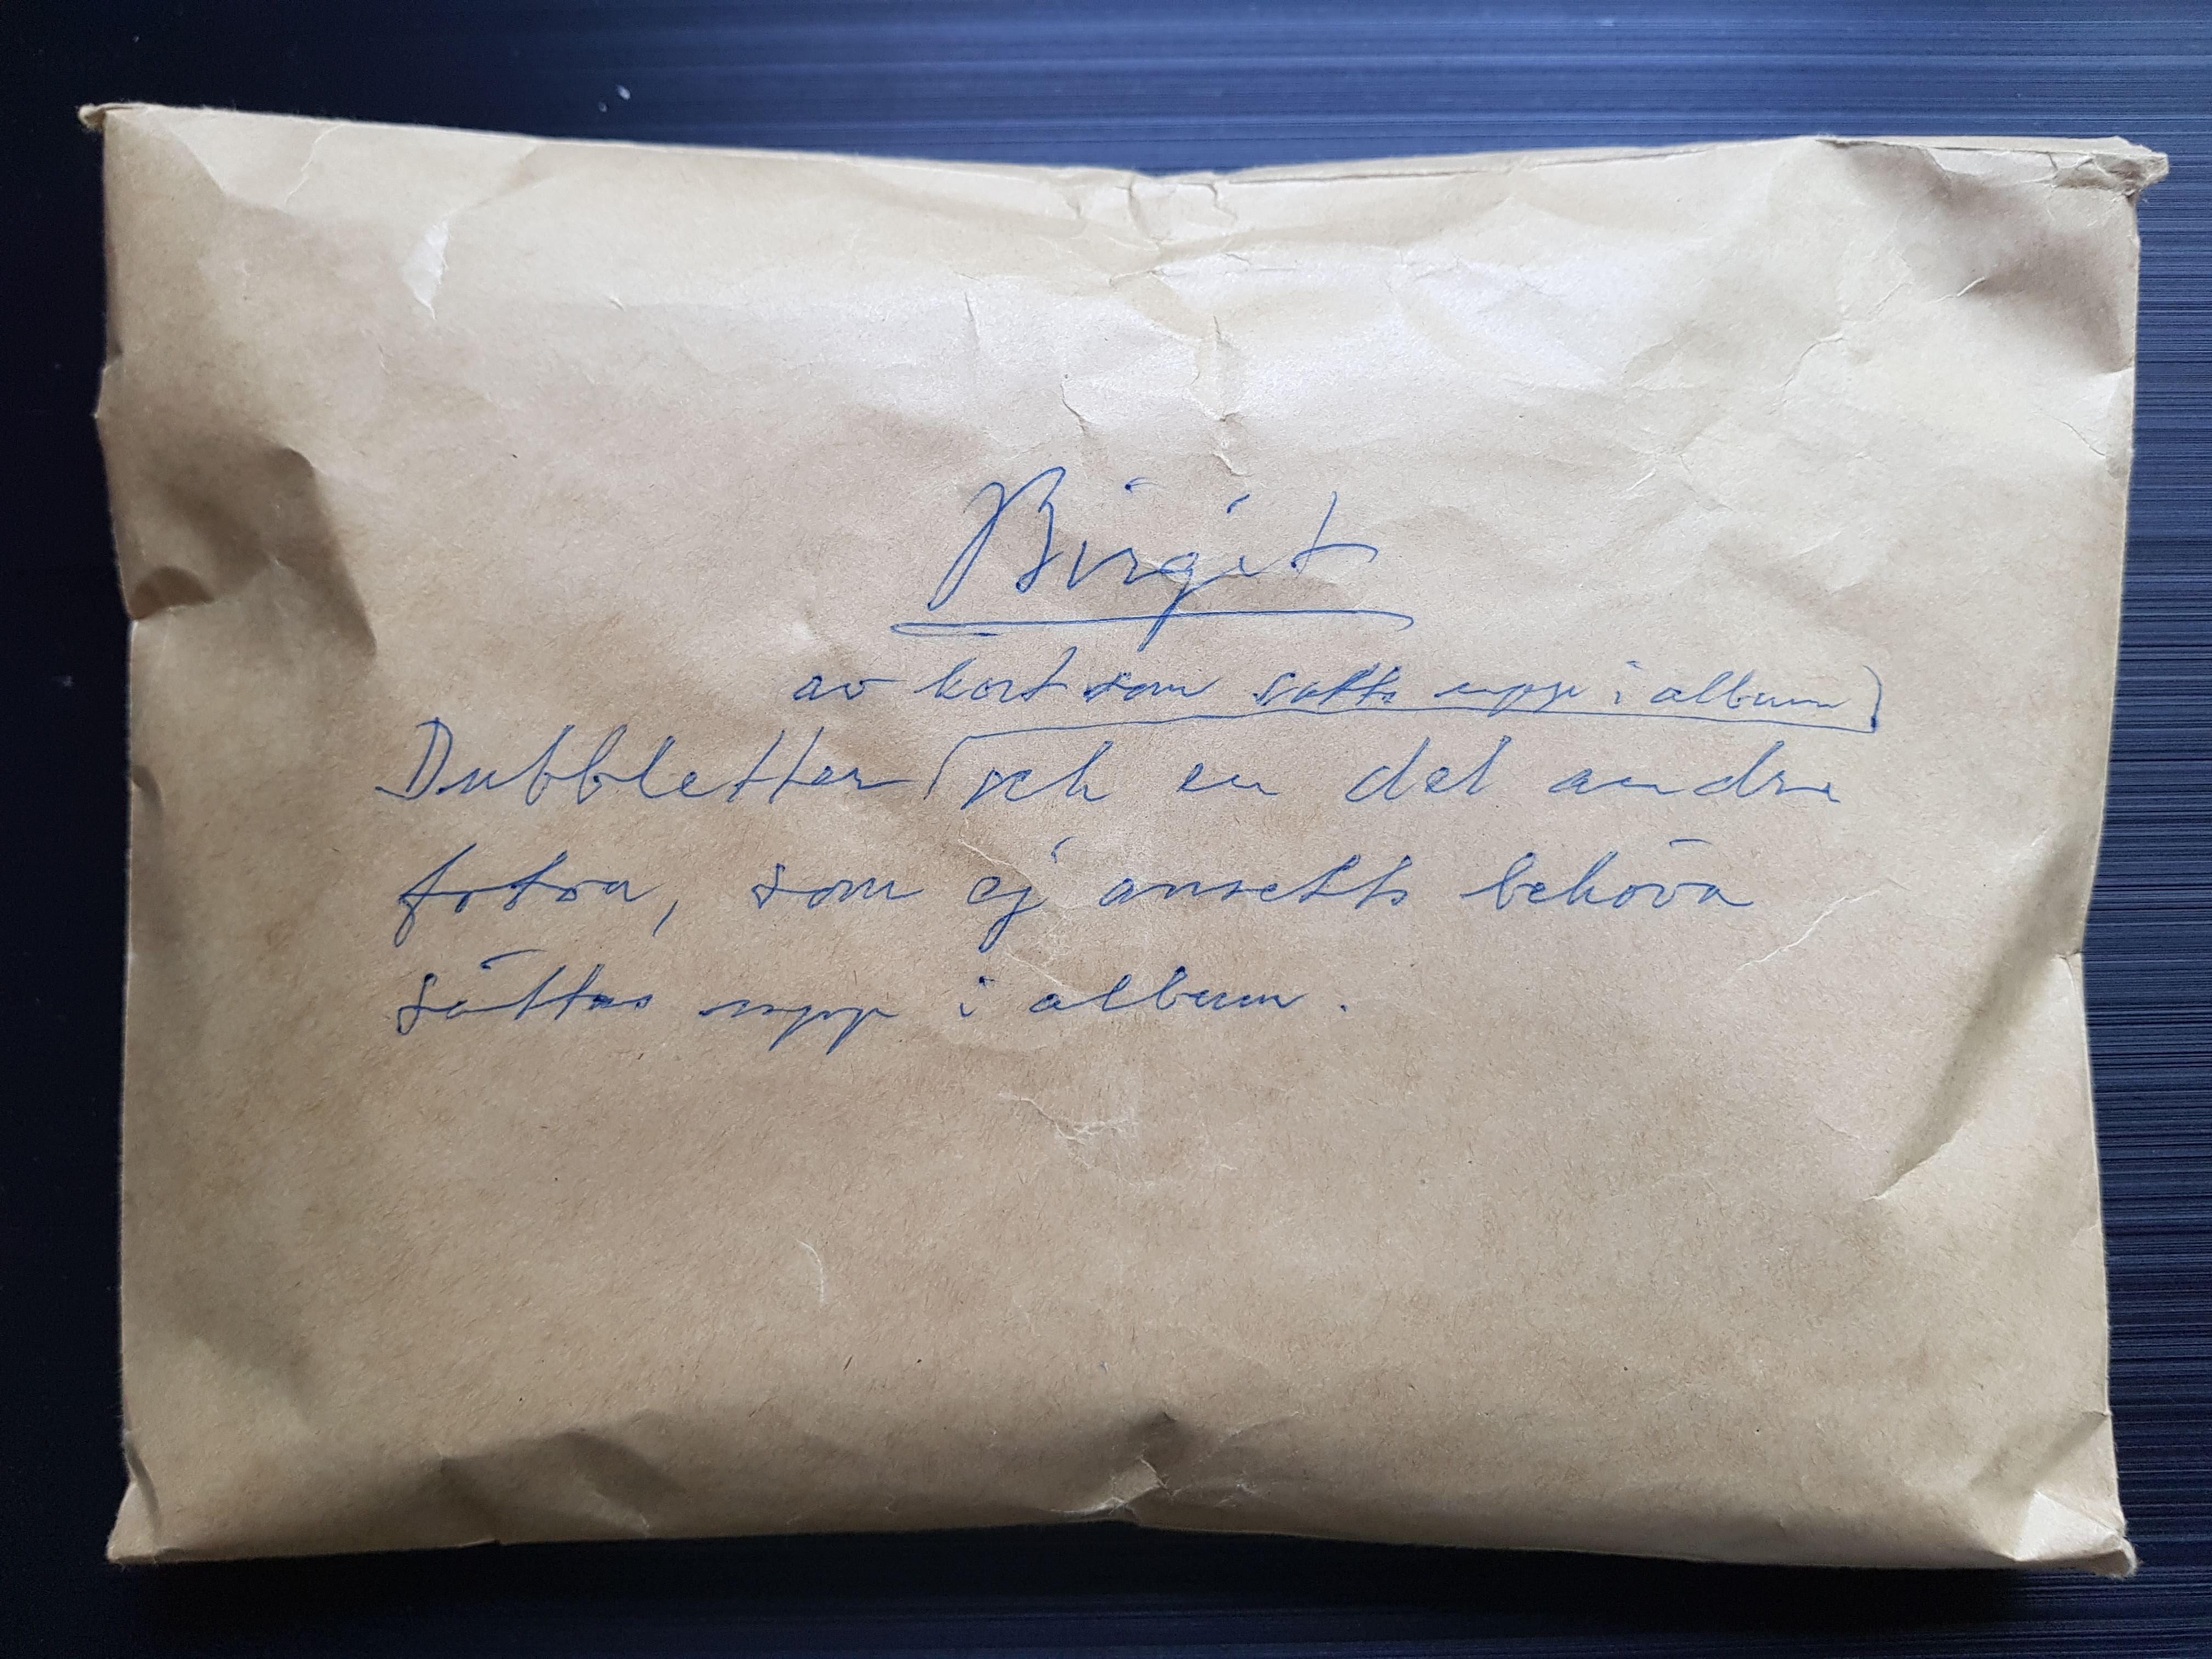 Birgit
av kort som satts upp i album
Dubbletter och en del andra
foton, som ej ansetts behöva
sättas upp i album.